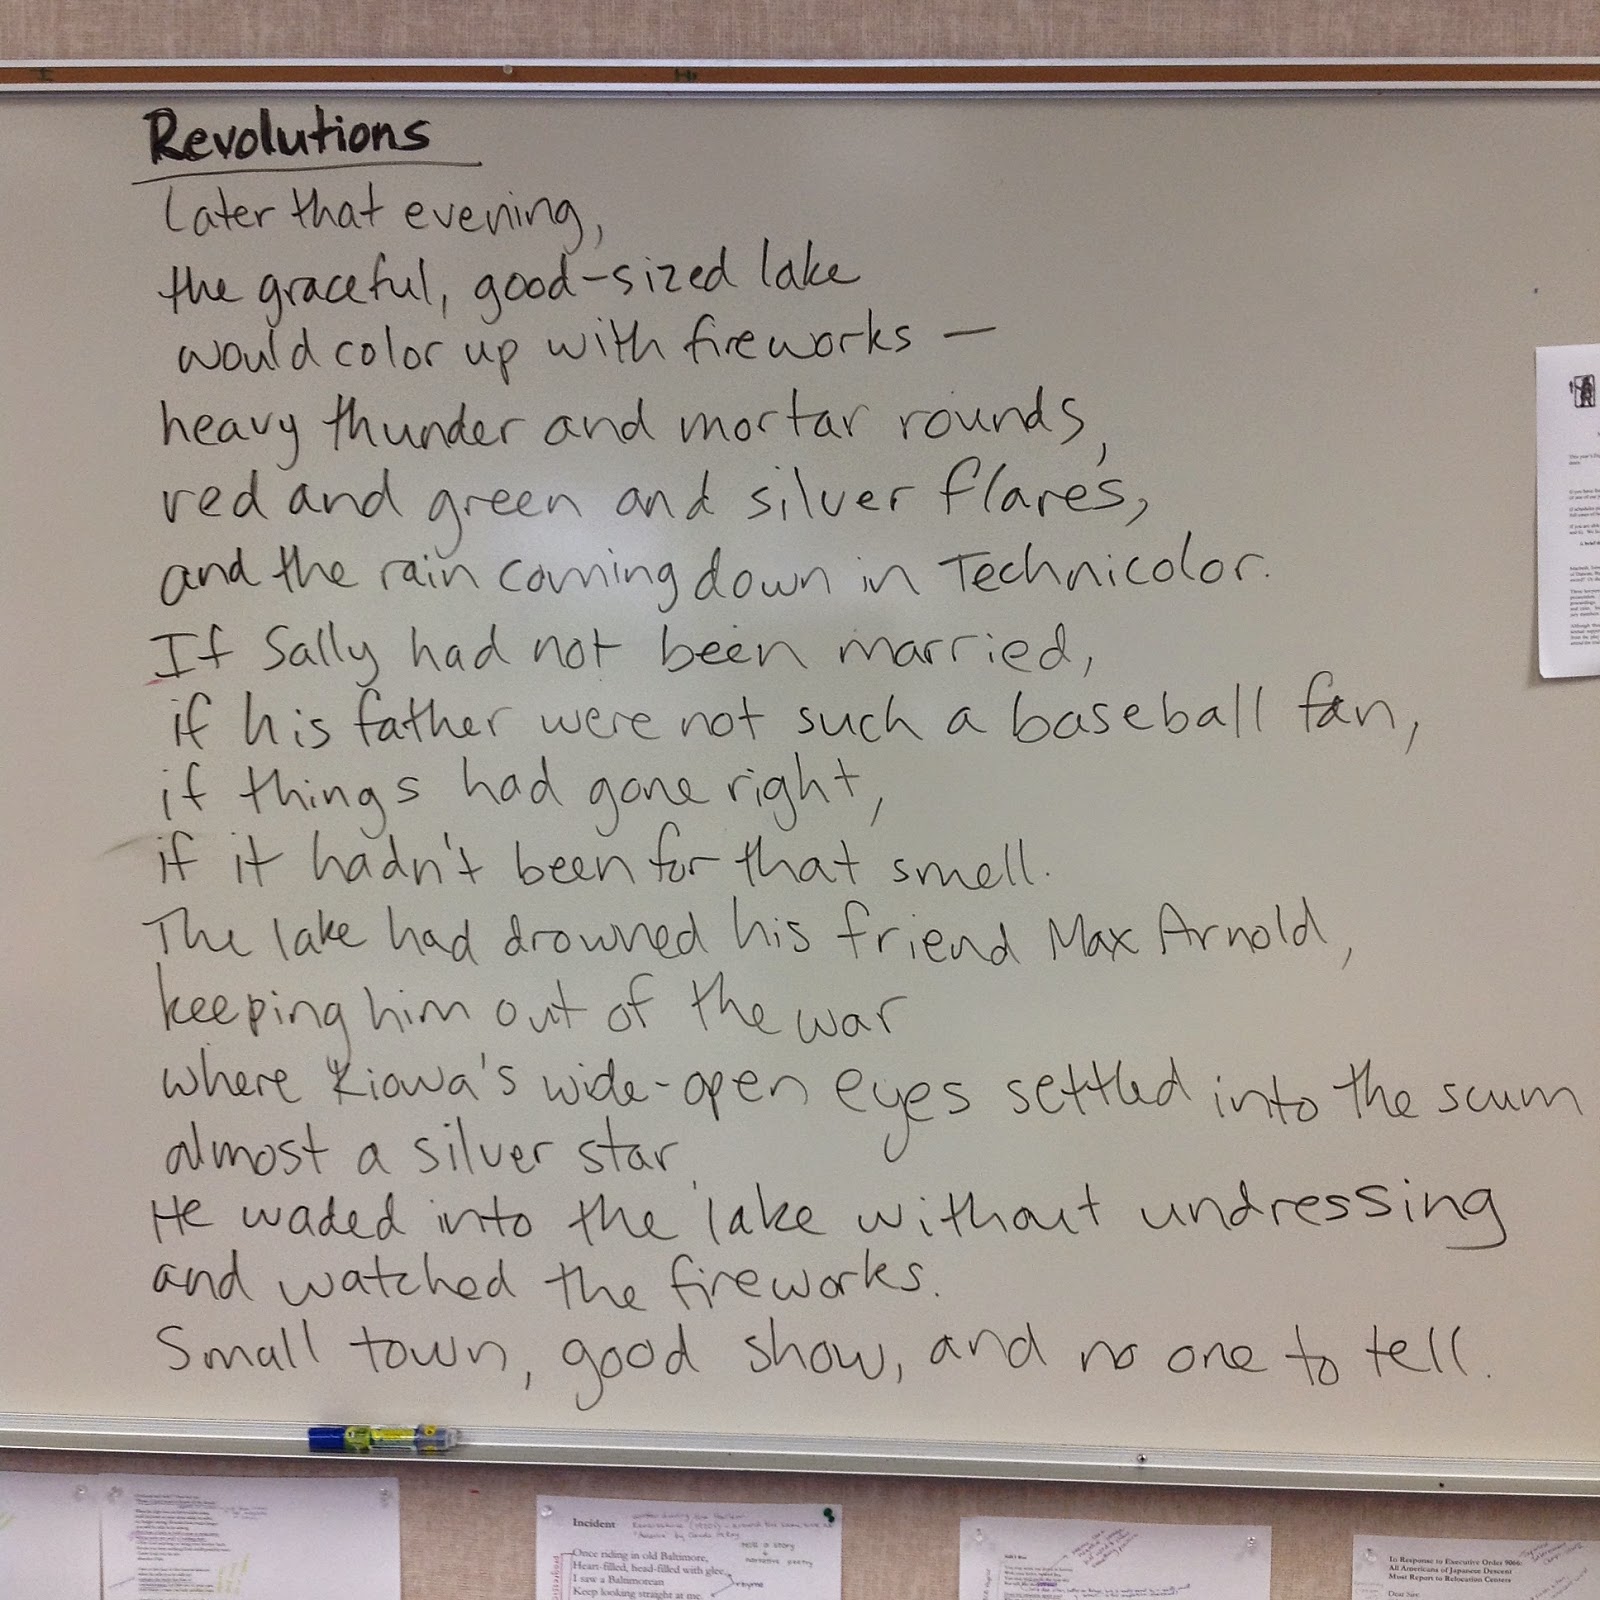 Revolutions
Later that evening,
the graceful, good-sized lake
would color up with fireworks —
heavy thunder and mortar rounds,
red and green and silver flares,
and the rain coming down in Technicolor.
If Sally had not been married,
if his father were not such a baseball fan,
if things had gone right,
if it hadn't been for that smell.
The lake had drowned his friend Max Arnold,
keeping him out of the war
where Kiowa's wide-open eyes settled into the scum
almost a silver star.
He waded into the lake without undressing
and watched the fireworks.
Small town, good show, and no one to tell.
Incident
Once riding in old Baltimore,
Heart-filled, head-filled with glee,
I saw a Baltimorean
Keep looking straight at me.
tell a story
+
narrative poetry
rhyme
In Response to Executive Order 9066:
All Americans of Japanese Descent
Must Report to Relocation Centers
Dear Sirs: